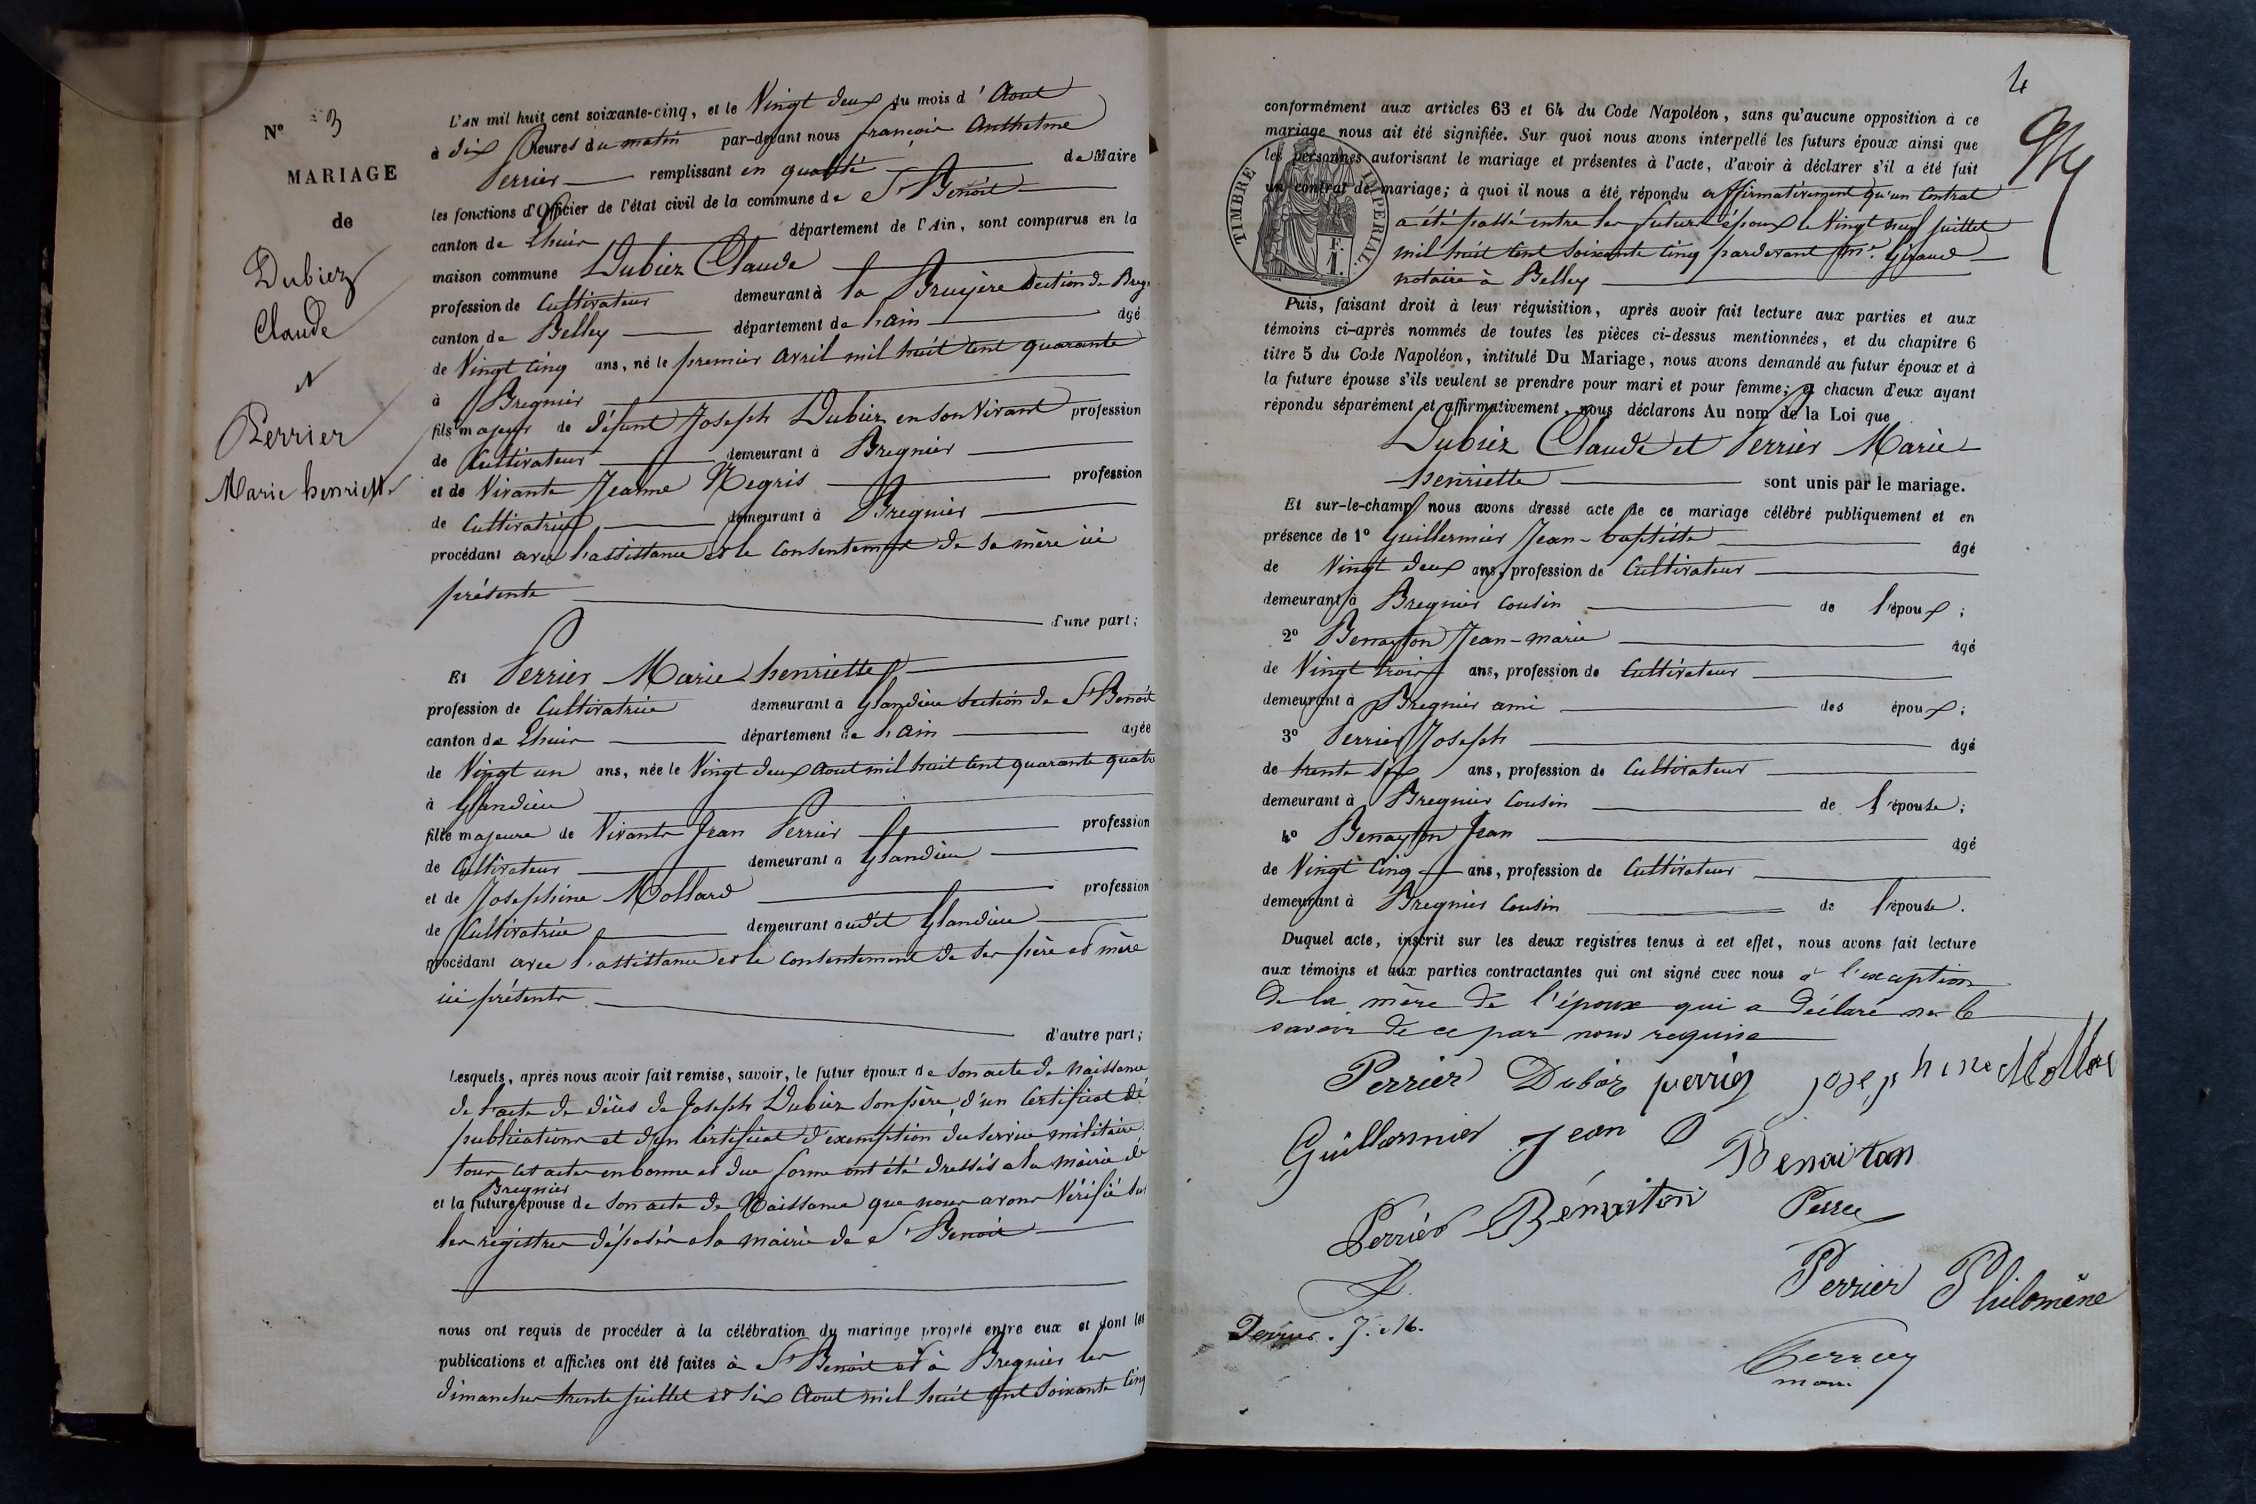 N° 3
MARIAGE
de
Dubiez
Claude
et
Perrier
Marie henriette
L'AN mil huit cent soixante-cinq, et le Vingt deux du mois d'Aout
à dix heures du matin par-devant nous françois Anthelme
Perrier remplissant en qualité de Maire
les fonctions d'Officier de l'état civil de la commune de St Benoit
canton de Lhuis département de l'Ain, sont comparus en la
maison commune Dubiez Claude
profession de Cultivateur demeurant à la Bruyère Section de Breg
canton de Belley département de l'ain âgé
de Vingt cinq ans, né le premier avril mil huit cent quarante
à Bregnier
fils majeur de défunt Joseph Dubiez en son Vivant profession
de Cultivateur demeurant à Bregnier
et de Vivante Jeanne Negris profession
de Cultivatrice demeurant à Bregnier
procédant avec l'assistance et le consentement de sa mère ici
présente
d'une part;
Et Perrier Marie henriette
profession de Cultivatrice demeurant à Glandieu Section de St Benoit
canton de Lhuis département de l'ain âgée
de Vingt un ans, née le Vingt deux aout mil huit cent quarante quatre
à Glandieu
fille majeure de Vivants Jean Perrier profession
de Cultivateur demeurant à Glandieu
et de Josephine Mollard profession
de Cultivatrice demeurant audit Glandieu
procédant avec l'assistance et le consentement de ses père et mère
ici présents
d'autre part;
Lesquels, après nous avoir fait remise, savoir, le futur époux de son acte de naissance
de l'acte de décès de Joseph Dubiez son père, d'un Certificat de
publications et d'un Certificat d'exemption du service militaire
tous ces actes en bonne et due forme ont été dressés a la mairie de
Bregnier
et la future épouse de son acte de Naissance que nous avons Vérifié sur
les registres déposés a la mairie de St Benoit
nous ont requis de procéder à la célébration du mariage projeté entre eux et dont les
publications et affiches ont été faites à St Benoit et à Bregnier les
dimanches trente juillet et six Aout mil huit cent soixante cinq
4
conformément aux articles 63 et 64 du Code Napoléon, sans qu'aucune opposition à ce
mariage nous ait été signifiée. Sur quoi nous avons interpellé les futurs époux ainsi que
les personnes autorisant le mariage et présentes à l'acte, d'avoir à déclarer s'il a été fait
un contrat de mariage; à quoi il nous a été répondu affirmativement qu'un Contrat
a été passé entre les futurs époux le Vingt neuf juillet
mil huit cent soixante cinq pardevant Me. Giraud
notaire à Belley
TIMBRE IMPERIAL.
Puis, faisant droit à leur réquisition, après avoir fait lecture aux parties et aux
témoins ci-après nommés de toutes les pièces ci-dessus mentionnées, et du chapitre 6
titre 5 du Code Napoléon, intitulé Du Mariage, nous avons demandé au futur époux et à
la future épouse s'ils veulent se prendre pour mari et pour femme; et chacun d'eux ayant
répondu séparément et affirmativement, nous déclarons Au nom de la Loi que
Dubiez Claude et Perrier Marie
henriette sont unis par le mariage.
Et sur-le-champ nous avons dressé acte de ce mariage célébré publiquement et en
présence de 1° Guillermier Jean-baptiste âgé
de Vingt deux ans, profession de Cultivateur
demeurant à Bregnier cousin de l'époux;
2° Benayton Jean-marie âgé
de Vingt trois ans, profession de Cultivateur
demeurant à Bregnier ami des époux;
3° Perrier Joseph âgé
de trente six ans, profession de Cultivateur
demeurant à Bregnier cousin de l'épouse;
4° Benayton Jean âgé
de Vingt cinq ans, profession de Cultivateur
demeurant à Bregnier cousin de l'épouse.
Duquel acte, inscrit sur les deux registres tenus à cet effet, nous avons fait lecture
aux témoins et aux parties contractantes qui ont signé avec nous à l'exception
de la mère de l'époux qui a déclaré ne le
savoir de ce par nous requise
Perrier Dubiez perrier josephine Mollard
Guillermier Jean B Benaiton
Perrier Bénaiton
Perrier Philomène
maire